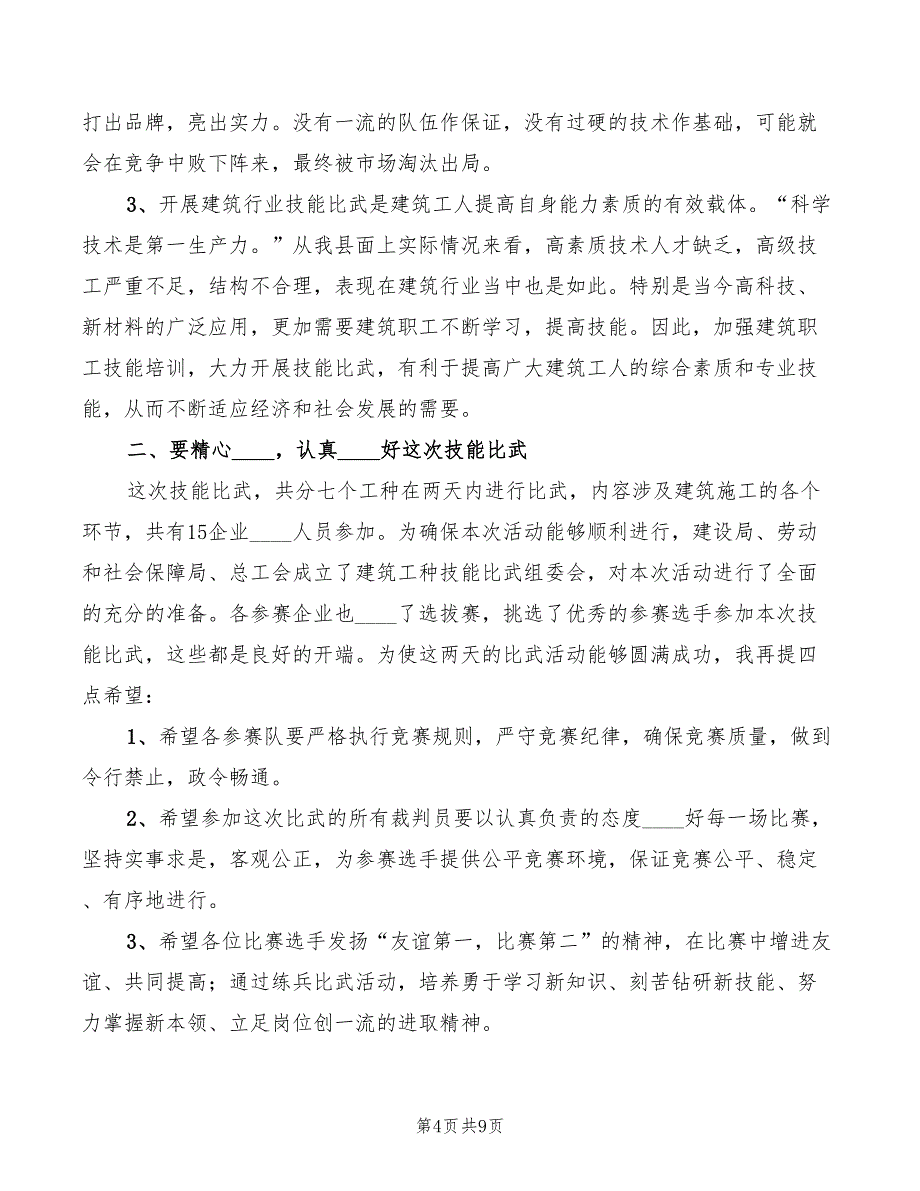 打出品牌，亮出实力。没有一流的队伍作保证，没有过硬的技术作基础，可能就
会在竞争中败下阵来，最终被市场淘汰出局。
3、开展建筑行业技能比武是建筑工人提高自身能力素质的有效载体。“科学
技术是第一生产力。”从我县面上实际情况来看，高素质技术人才缺乏，高级技
工严重不足，结构不合理，表现在建筑行业当中也是如此。特别是当今高科技、
新材料的广泛应用，更加需要建筑职工不断学习，提高技能。因此，加强建筑职
工技能培训，大力开展技能比武，有利于提高广大建筑工人的综合素质和专业技
能，从而不断适应经济和社会发展的需要。
二、要精心____，认真____好这次技能比武
这次技能比武，共分七个工种在两天内进行比武，内容涉及建筑施工的各个
环节，共有15企业____人员参加。为确保本次活动能够顺利进行，建设局、劳动
和社会保障局、总工会成立了建筑工种技能比武组委会，对本次活动进行了全面
的充分的准备。各参赛企业也____了选拔赛，挑选了优秀的参赛选手参加本次技
能比武，这些都是良好的开端。为使这两天的比武活动能够圆满成功，我再提四
点希望：
1、希望各参赛队要严格执行竞赛规则，严守竞赛纪律，确保竞赛质量，做到
令行禁止，政令畅通。
2、希望参加这次比武的所有裁判员要以认真负责的态度____好每一场比赛，
坚持实事求是，客观公正，为参赛选手提供公平竞赛环境，保证竞赛公平、稳定
、有序地进行。
3、希望各位比赛选手发扬“友谊第一，比赛第二”的精神，在比赛中增进友
谊、共同提高；通过练兵比武活动，培养勇于学习新知识、刻苦钻研新技能、努
力掌握新本领、立足岗位创一流的进取精神。
第4页 共9页